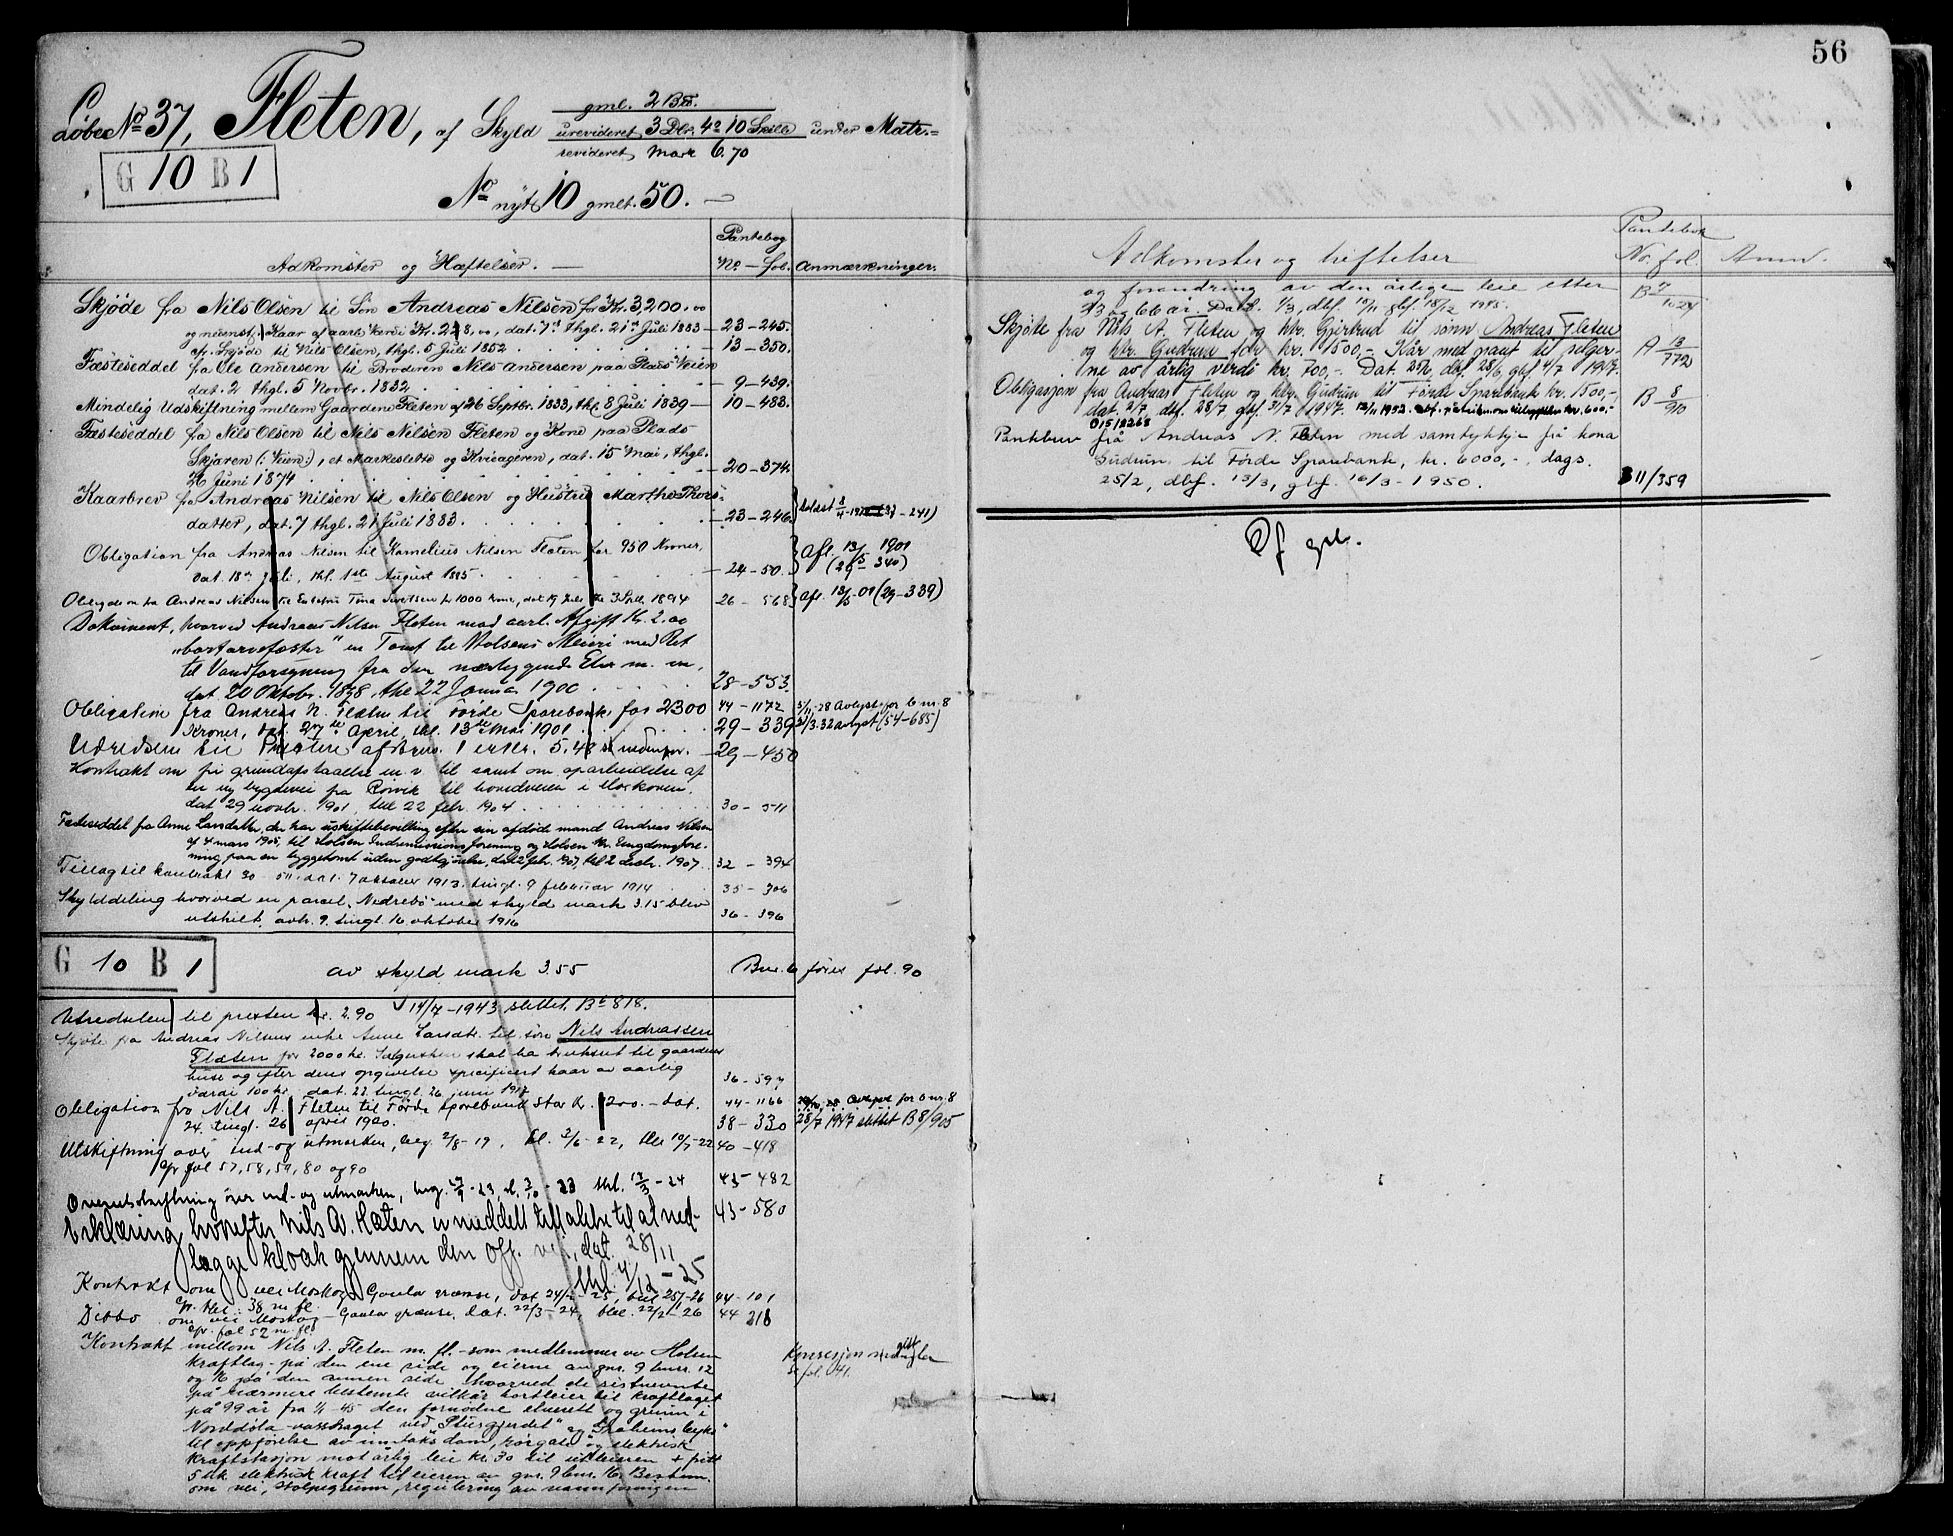 56
Løbe No 37, Fleten, af Skyld
gml. 2 B℔.
urevideret 3 Dlr. 4 10 Skill under Matr.=
revideret Mark 6.70
G 10 B 1
No nyt 10 gmlt. 50.
Adkomster og Hæftelser.
Pantebog
No - fol.
Anmærkninger.
Skjøde fra Nils Olsen til Søn Andreas Nilsen for Kr. 3200.00
og nævnst. Kaar af aarl. Værdi Kr. 228,00, dat. 7de thgl. 21de Juli 1883 23-245.
cfr. Skjøde til Nils Olsen, thgl. 5 Juli 1852 13-350.
Fæsteseddel fra Ole Andersen til Broderen Nils Andersen paa Plads Veien
dat. 2 thgl. 5 Novbr. 1832 9-439.
Mindelig Udskiftning mellem Gaardene Fleten af 26 Septbr. 1833, thl. 8 Juli 1839 10-483.
Fæsteseddel fra Nils Olsen til Nils Nilsen Fleten og Kone paa Plads
Skjæren (: Veien:), et Markeslette og Kvieageren, dat. 15 Mai, thgl.
26 Juni 1874 20-374.
Kaarbrev fra Andreas Nilsen til Nils Olsen og Hustru Marthe Thors-
datter, dat. 7 thgl. 21 Juli 1883. 23-246.
Obligation fra Andreas Nilsen til Kornelius Nilsen Fleten for 950 Kroner,
dat. 18de Juli, thl. 1ste August 1885. 24-50. afl. 13/5 1901
(29-340)
Obligation fra Andreas Nilsen til Enkefru Tina Sivertsen for 1000 Kroner, dat. 19 Juli thl. 3 Sept. 1894 26-568 afl. 13/5-01 (29-339)
Dokument, hvorved Andreas Nilsen Fleten mod aarl. Afgift Kr. 2.00
"bortarvefæster" en Tomt til Holsens Meieri med Ret
til Vandforsyning fra den nærliggende Elv m. m.
dat. 20 Oktobr. 1898, thl. 22 Januar 1900 28-553.
Obligation fra Andreas N. Fleten til Førde Sparebank for 2300 44-1172 5/11-28 avlyst for b nr. 8
Kroner, dat. 27de April, thl. 13de Mai 1901. 29-339 21/3.32 avlyst (54-685)
Udredsene til Presten af Brns. 1 er Kr. 5.48 se nedenfor. 29-450
Kontrakt om fri grundafstaaelse m. v. til samt om oparbeidelse af
en ny bygdevei fra Rørvik til hovedveien i Moskoven.
dat 29 novbr. 1901, thl 22 febr 1904 30-511
Fæsteseddel fra Anne Larsdatter, der har uskiftebevilling efter sin afdøde mand Andreas Nilsen
af 4 mars 1905, til Holsen Indremissionsforening og Holsen Kr. Ungdomsfore-
ning paa en byggetomt uden godtgjørelse, dat 2 febr. 1907, thl 2 decbr. 1907 32-394
Tillæg til kontrakt 30-511, dat. 7 oktober 1913. tingl. 9 februar 1914 35-306
Skylddeling hvorved en parcel, Nedrebø med skyld mark 3.15 blev
utskilt, avh. 9. tingl. 16 oktober 1916 36-396
G 10 B 1
av skyld mark 3.55
Bnr. 6 føres fol. 90
Utredselen til presten kr. 2.90 14/7-1943 slettet. B6 818.
Skjøte fra Andreas Nilsens enke Anne Larsdtr. til søn Nils Andreassen
Fleten for 2000 kr. Sælgersken skal ha bruksret til gaardens
huse og efter deres opgivelse specificert kaar av aarlig
værdi 100 kr. dat. 22. tingl. 26 juni 1917 36-597
Obligation fra Nils A. Fleten til Førde Sparebank stor kr. 1200.- dat. 44-1166 avlyst for b nr. 8
24. tingl. 26 april 1920. 38-330 28/7 1947 slettet B 8/905
Utskiftning over ind- og utmarken, beg. 2/8-19, sl. 2/6-22, thl 10/7-22 40-418
cfr fol 57, 58, 59, 80 og 90
Overutskiftning over ind- og utmarken, beg. 27/9-23, sl. 3/10-23 thl. 17/3-24 43-482
Erklæring hvorefter Nils A. Fleten er meddelt tilladelse til at ned- 43-580
lægge kloak gjennem den off. vei, dat. 28/11
thl. 4/12-25
Kontrakt om vei Moskog Gaular grænse, dat 24/2-25, thl 25/1-26 44-101
cfr. fol 38 m. fl.
Ditto om vei Moskog - Gaular grænse, dat. 22/3-24, thl. 22/2-26 44 218
cfr. fol 52 m. fl.
Kontrakt mellom Nils A. Fleten m. fl. - som medlemmer av Holsen
kraftlag - på den ene side og eierne av gnr. 9 bnr. 12
og 16 på den annen side hvorved de sistnevnte
på nærmere bestemte vilkår bortleier til kraftlaget
på 99 år fra 1/1-45 den fornødne elverett og grunn i
Norddøla-vassdraget ved "Stusgjerdet" og
til oppførelse av inntaksdam, rørgate og elektrisk
kraftstasjon mot årlig leie kr. 30 til utleieren + fritt
5 stk elektrisk kraft til eieren av gnr. 9 bnr. 16. Bestem.
om vei, stolpegrunn, regulering av vannføringen
Konsesjon
se fol. 41.
Adkomster og heftelser
Pantebok
Nr. fol.
Anm.
og forandring av den årlige leie etter B 7/1024
33 og 66 år. Dat. 1/3, dbf. 10/11 gbf. 18/12 1945.
Skjøte fra Nils A. Fleten og hr. Gjertrud til sønn Andreas Fleten
og hr. Gudrun for kr. 1500,- Kår med pant til selger- A 13/772
ne av årlig verdi kr. 700,-. Dat. 25/6, dbf. 28/6 gbf 4/7 1947.
Obligasjon fra Andreas Fleten og hr. Gudrun til Førde Sparebank kr. 1500,- B 8/910
dat. 2/7, dbf. 28/7 gbf. 31/7 1947.
Pantebrev frå Andreas N. Fleten med samtykkje frå kona
Gudrun til Førde Sparebank, kr. 6000,-, dags.
25/2, dbf. 13/3, gbf. 16/3-1950. B 11/359